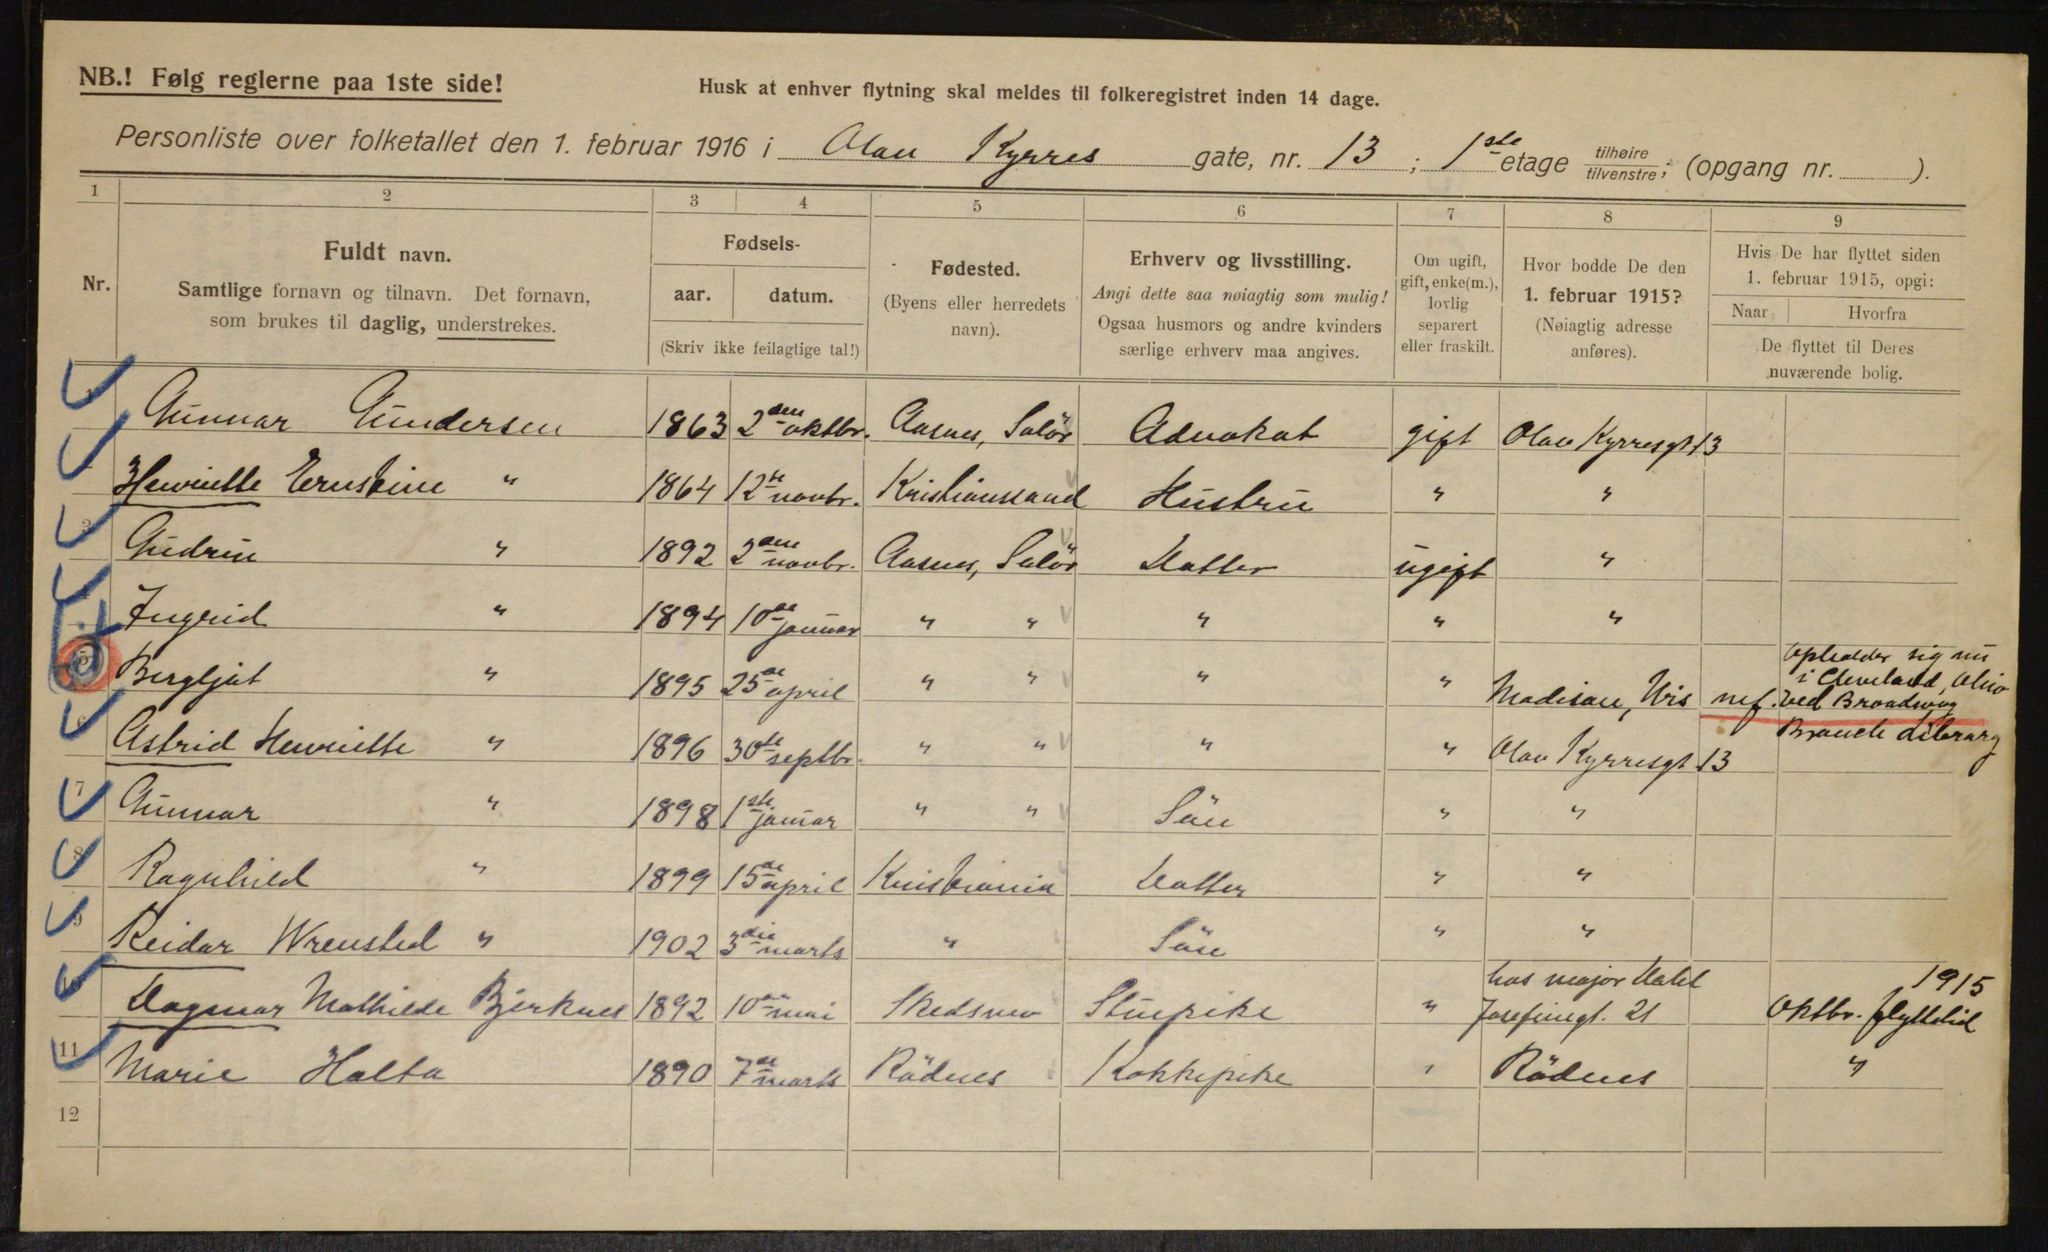 NB.! Følg reglerne paa 1ste side!
Husk at enhver flytning skal meldes til folkeregistret inden 14 dage.
Personliste over folketallet den 1. februar 1916 i Olav Kyrres gate, nr. 13; 1ste etage tilhøire/tilvenstre; (opgang nr. ).
1 2 3 4 5 6 7 8 9
Nr.
Fuldt navn.
Samtlige fornavn og tilnavn. Det fornavn,
som brukes til daglig, understrekes.
Fødsels-
aar. datum.
(Skriv ikke feilagtige tal!)
Fødested.
(Byens eller herredets
navn).
Erhverv og livsstilling.
Angi dette saa nøiagtig som mulig!
Ogsaa husmors og andre kvinders
særlige erhverv maa angives.
Om ugift,
gift, enke(m.),
lovlig
separert
eller fraskilt.
Hvor bodde De den
1. februar 1915?
(Nøiagtig adresse
anføres).
Hvis De har flyttet siden
1. februar 1915, opgi:
Naar Hvorfra
De flyttet til Deres
nuværende bolig.
Gunnar Gundersen 1863 2den oktbr. Aasnes, Solör Advokat gift Olav Kyrresgt 13
Henriette Ernstine " 1864 12te novbr. Kristianssand Hustru " "
3 Gudrun " 1892 2den novbr. Aasnes, Solör Datter ugift "
Ingrid " 1894 10de januar " " " " "
5 Bergljót " 1895 25de april " " " " Madison, Wis
opholder sig nu
i Cleveland, Ohio
ved Broadway
Branch Library
6 Astrid Henriette " 1896 30te septbr. " " " " Olav Kyrresgt 13
7 Gunnar " 1898 1ste januar " " Sön " "
8 Ragnhild " 1899 15de april Kristiania Datter " "
9 Reidar Wrensted " 1902 3die marts " Sön " "
10 Dagmar Mathilde Bjerknes 1892 10de mai Skedsmo Stuepike " hos major Dahl
Josefinegt. 21 Oktbr. 1915 flyttetid
11 Marie Holta 1890 7de marts Rödnes Kokkepike " Rödnes "
12